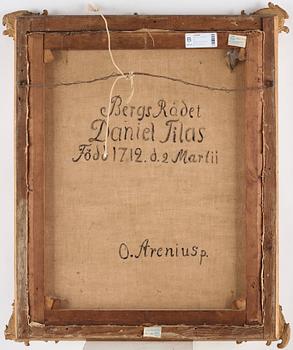 Bergs Rådet
Daniel Tilas
Född 1712. d. 2 Martii
O. Arenius p.